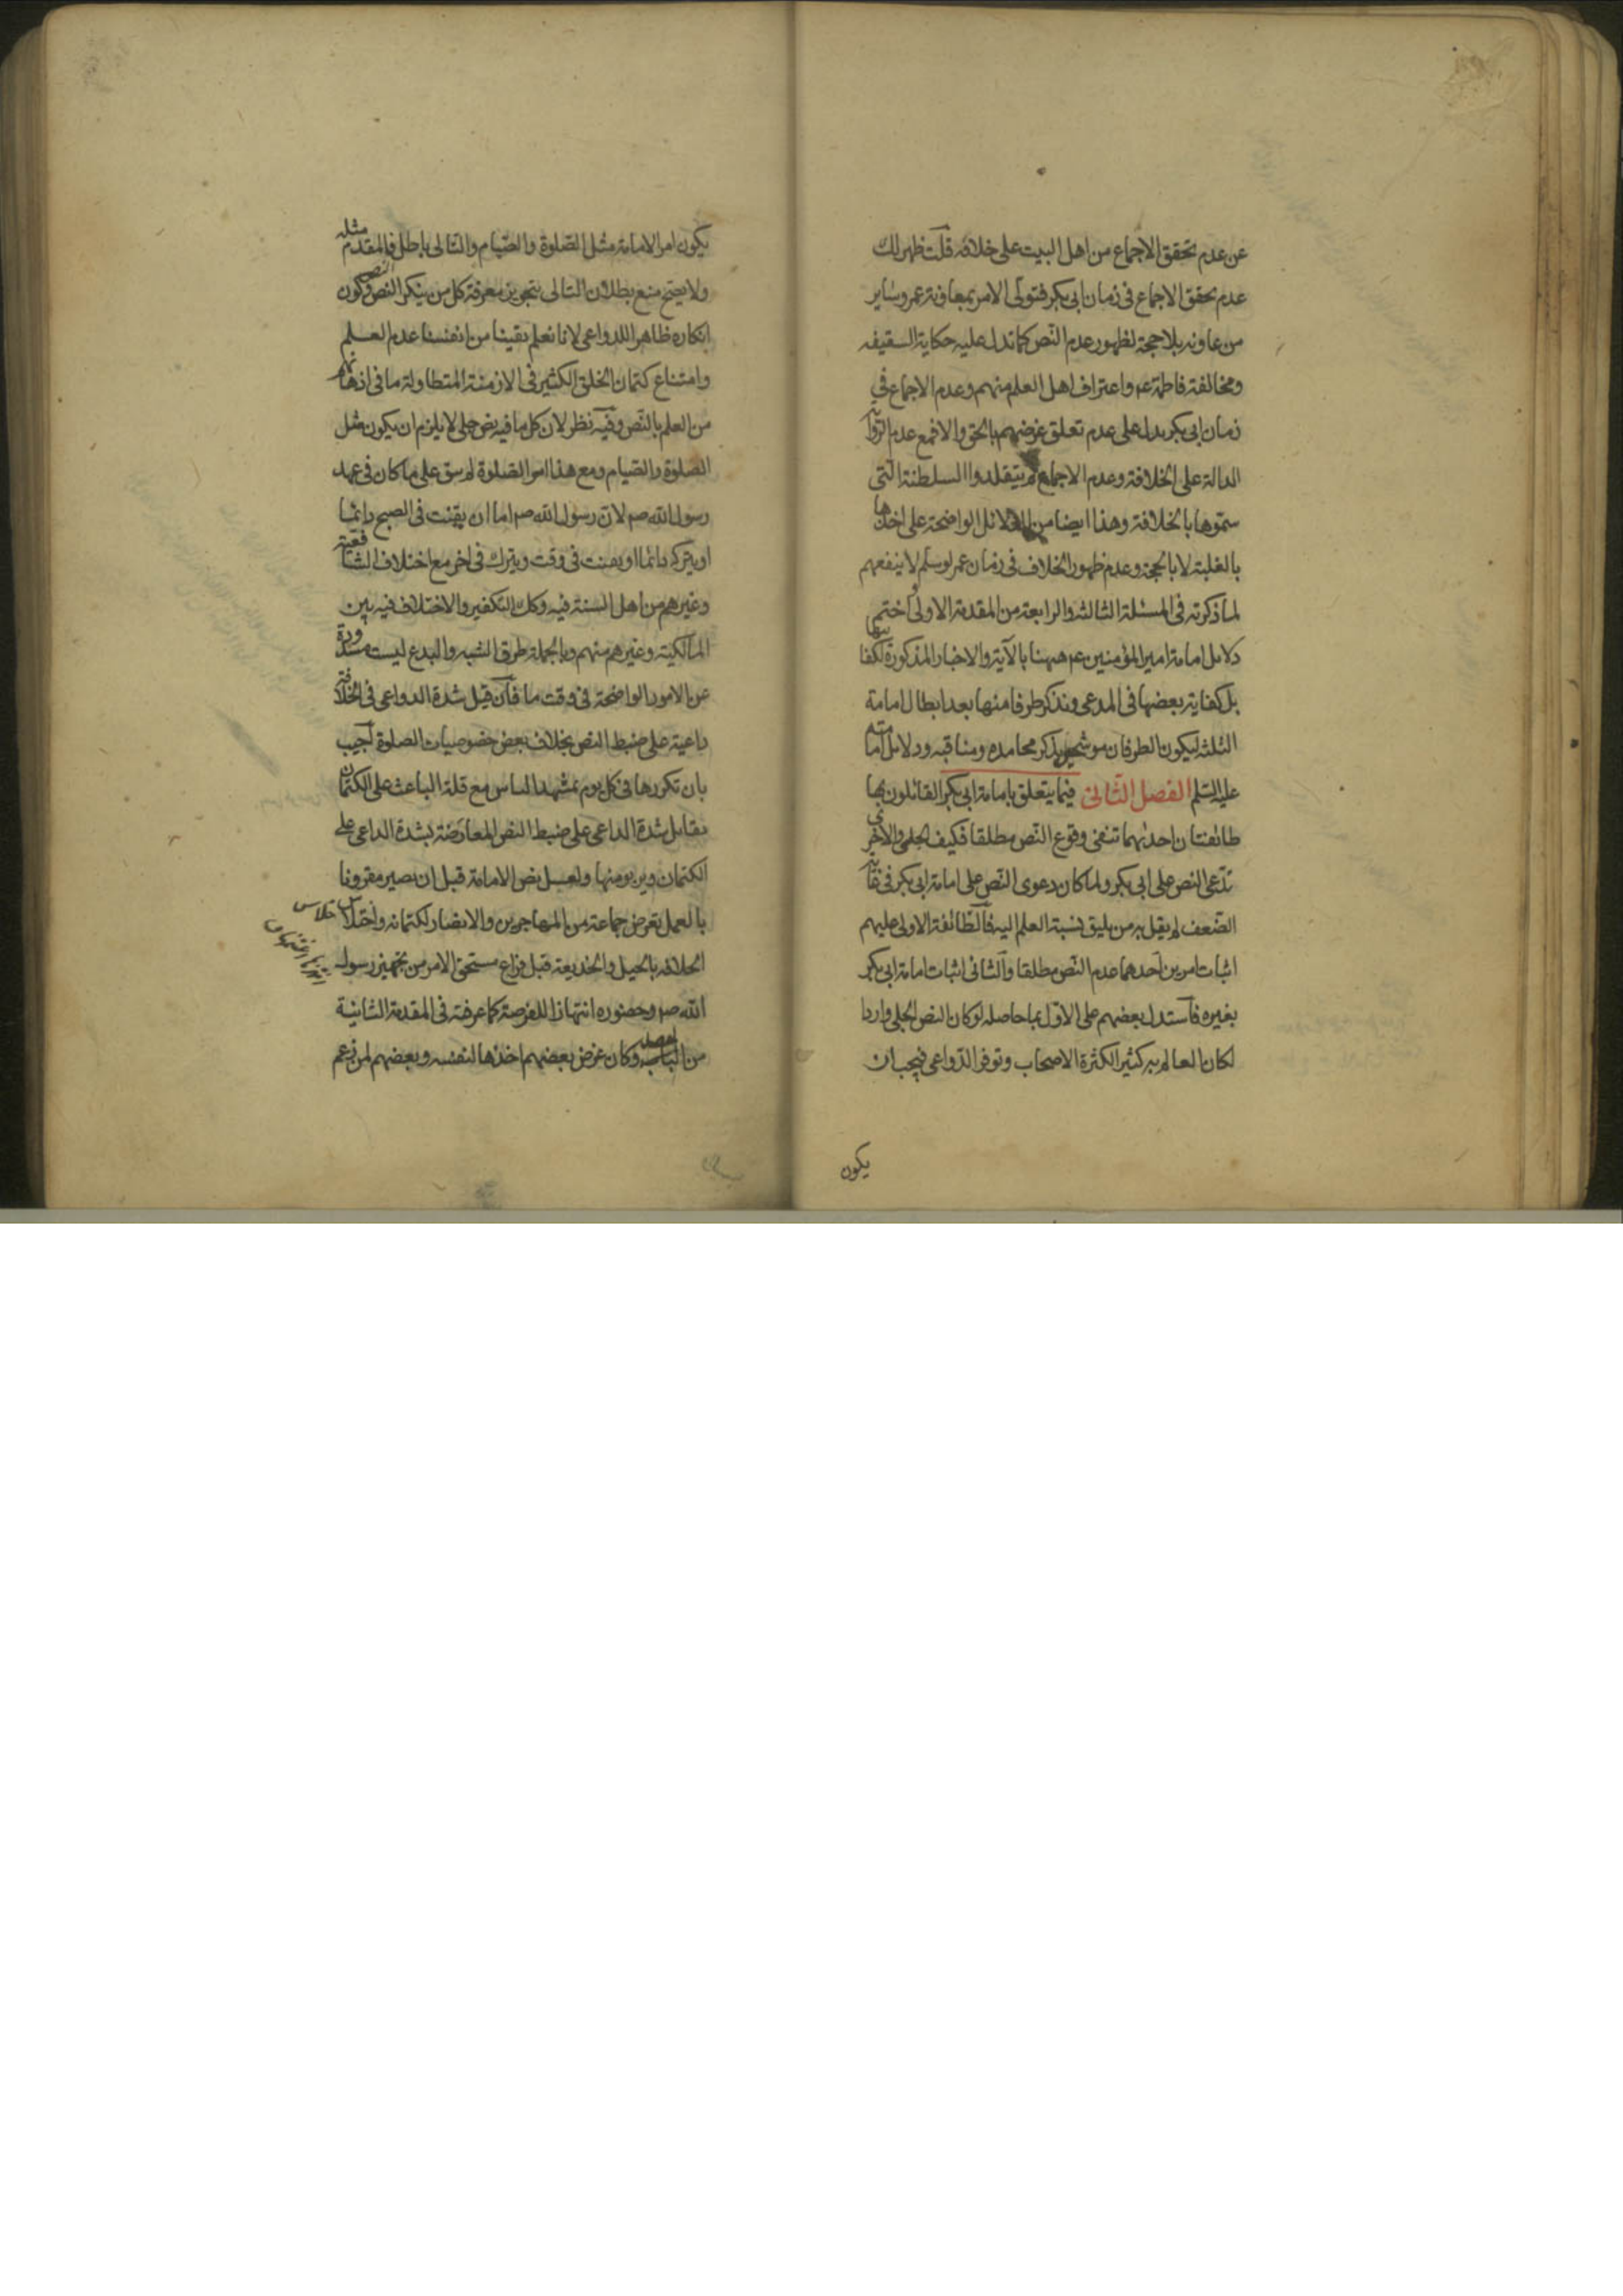 عن عدم تحقق الاجماع من اهل البيت على خلافه قلت ظهر لك
عدم تحقق الاجماع فى زمان ابى بكر فتولى الامر بمعاونة عمر وساير
من عاونه بلا حجة لظهور عدم النص كما تدل عليه حكاية السقيفه
ومخالفة فاطمة عم واعتراف اهل العلم منهم وعدم الاجماع في
زمان ابى بكر يدل على عدم تعلق غرضهم بالحق والا فمع عدم الرواية
الدالة على الخلافة وعدم الاجماع لم يتقلدوا السلطنة التى
سموها بالخلافة وهذا ايضا من الدلائل الواضحة على اخذها
بالغلبة لا بالحجة وعدم ظهور الخلاف فى زمان عمر لو سلم لا ينفعهم
لما ذكرته فى المسئلة الثالثة والرابعة من المقدمة الاولى واختم
دلايل امامة امير المؤمنين عم ههنا بالآية والاخبار المذكورة لكفايتها
بل كفاية بعضها فى المدعى ونذكر طرفا منها بعد ابطال امامة
الثلثة ليكون الطرفان موشحين بذكر محامده ومناقبه ودلايل امامته
عليه السلم الفصل الثانى فيما يتعلق بامامة ابى بكر القائلون بها
طائفتان احديهما تنفى وقوع النص مطلقا فكيف الجلى والاخرى
تدعى النص على ابى بكر ولما كان دعوى النص على امامة ابى بكر فى غاية
الضعف لم يقل به من يليق نسبة العلم اليه فالطائفة الاولى عليهم
اثبات امرين احدهما عدم النص مطلقا والثانى اثبات امامة ابى بكر
بغيره فاستدل بعضهم على الاول بما حاصله لو كان النص الجلى واردا
لكان العالم به كثيرا لكثرة الاصحاب وتوفر الدواعى فيجب ان
يكون
يكون امر الامامة مثل الصلوة والصيام والتالى باطل فالمقدم مثله
ولا يصح منع بطلان التالى بتجويز معرفة كل من ينكر النص النص وكون
انكاره ظاهرا للدواعى لانا نعلم يقينا من انفسنا عدم العلم
وامتناع كتمان الخلق الكثير فى الازمنة المتطاولة ما فى اذهانهم
من العلم بالنص وفيه نظر لان كل ما فيه نص جلى لا يلزم ان يكون مثل
الصلوة والصيام ومع هذا امر الصلوة لم يبق على ما كان فى عهد
رسول الله صم لان رسول الله صم اما ان يقنت فى الصبح دائما
او يتركه دائما او يقنت فى وقت ويترك فى اخر مع اختلاف الشافعية
وغيرهم من اهل السنة فيه وكذلك التكفير والاختلاف فيه بين
المالكية وغيرهم منهم وبالجملة طرق الشبه والبدع ليست مسدودة
عن الامور الواضحة فى وقت ما فان قيل شدة الدواعى فى الخلافة
داعية على ضبط النص بخلاف بعض خصوصيات الصلوة اجيب
بان تكررها فى كل يوم بمشهد الناس مع قلة الباعث على الكتمان
يقابل شدة الداعى على ضبط النص المعارضة بشدة الداعى على
الكتمان ويربو منها ولعل نص الامامة قبل ان يصير مقرونا
بالعمل تعرض جماعة من المهاجرين والانصار لكتمانه واختلاس
الخلافة بالحيل والخديعة قبل فراغ مستحق الامر من تجهيز رسول
الله صم وحضوره انتهازا للفرصة كما عرفته فى المقدمة الثانية
من الباب وكان غرض بعضهم اخذها لنفسه وبعضهم لمن زعم